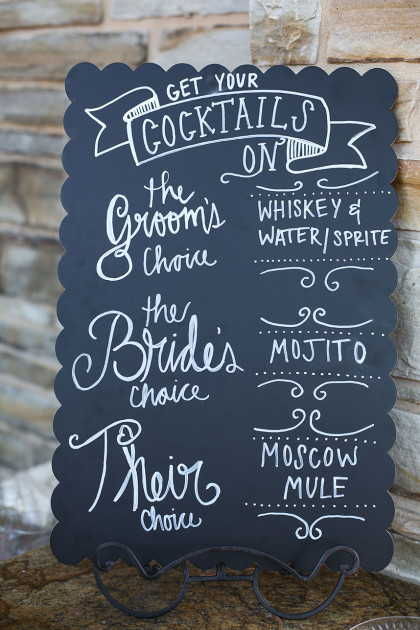 GET YOUR
COCKTAILS
ON
the
Groom's
Choice
WHISKEY &
WATER/SPRITE
the
Bride's
choice
MOJITO
Their
choice
MOSCOW
MULE